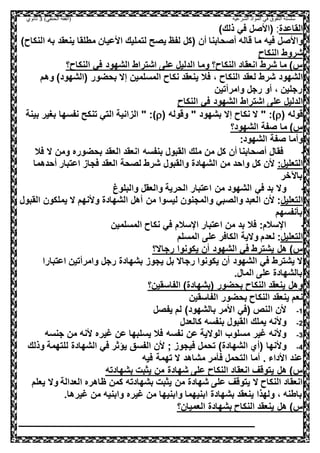 سلسلة التفوق في المواد الشرعية (الفقه الحنفي) 3 ثانوي
القاعدة: (الأصل في ذلك)
والأصل فيه ما قاله أصحابنا أن (كل لفظ يصح لتمليك الأعيان مطلقا ينعقد به النكاح)
شروط النكاح
س) ما شرط انعقاد النكاح؟ وما الدليل على اشتراط الشهود في النكاح؟
الشهود شرط لعقد النكاح ، فلا ينعقد نكاح المسلمين إلا بحضور (الشهود) وهم
رجلين ، أو رجل وامرأتين
الدليل على اشتراط الشهود في النكاح
قوله (ρ): " لا نكاح إلا بشهود " وقوله (ρ): " الزانية التي تنكح نفسها بغير بينة
س) ما صفة الشهود؟
وأما صفة الشهود:
- فقال أصحابنا أن كل من ملك القبول بنفسه انعقد العقد بحضوره ومن لا فلا
التعليل: لأن كل واحد من الشهادة والقبول شرط لصحة العقد فجاز اعتبار أحدهما
بالآخر
- ولا بد في الشهود من اعتبار الحرية والعقل والبلوغ
التعليل: لأن العبد والصبي والمجنون ليسوا من أهل الشهادة ولأنهم لا يملكون القبول
بأنفسهم
- الإسلام: فلا بد من اعتبار الإسلام في نكاح المسلمين
التعليل: لعدم ولاية الكافر على المسلم
س) هل يشترط في الشهود أن يكونوا رجالا؟
لا يشترط في الشهود أن يكونوا رجالا بل يجوز بشهادة رجل وامرأتين اعتبارا
بالشهادة على المال.
وهل ينعقد النكاح بحضور (بشهادة) الفاسقين؟
نعم ينعقد النكاح بحضور الفاسقين
1- لأن النص (في الأمر بالشهود) لم يفصل
2- ولأنه يملك القبول بنفسه كالعدل
3- ولأنه غير مسلوب الولاية عن نفسه فلا يسلبها عن غيره لأنه من جنسه
4- ولأنها (أي الشهادة) تحمل فيجوز ; لأن الفسق يؤثر في الشهادة للتهمة وذلك
عند الأداء . أما التحمل فأمر مشاهد لا تهمة فيه
س) هل يتوقف انعقاد النكاح على شهادة من يثبت بشهادته
انعقاد النكاح لا يتوقف على شهادة من يثبت بشهادته كمن ظاهره العدالة ولا يعلم
باطنه ، ولهذا ينعقد بشهادة ابنيهما وابنيها من غيره وابنيه من غيرها.
س) هل ينعقد النكاح بشهادة العميان؟